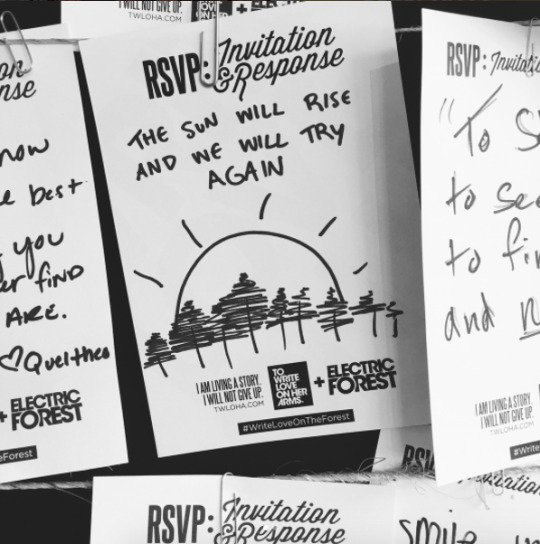 I WILL NOT GIVE UP.
TWLOHA.COM
LOVE
ON HER
ARMS.
nse
now
best
you
FIND
ARE.
♡Quelthea
+ ELECTRIC
FOREST
eForest
RSVP: Invitation
& Response
THE SUN WILL RISE
AND WE WILL TRY
AGAIN
I AM LIVING A STORY.
I WILL NOT GIVE UP.
TWLOHA.COM
TO
WRITE
LOVE
ON HER
ARMS.
+ ELECTRIC
FOREST
#WriteLoveOnTheForest
RSVP: Invitati
"To s
to see
to fin
and n
I AM LIVING A STORY.
I WILL NOT GIVE UP.
TWLOHA.COM
#Write
RSVP: Invitation
& Response
RSVP
smile